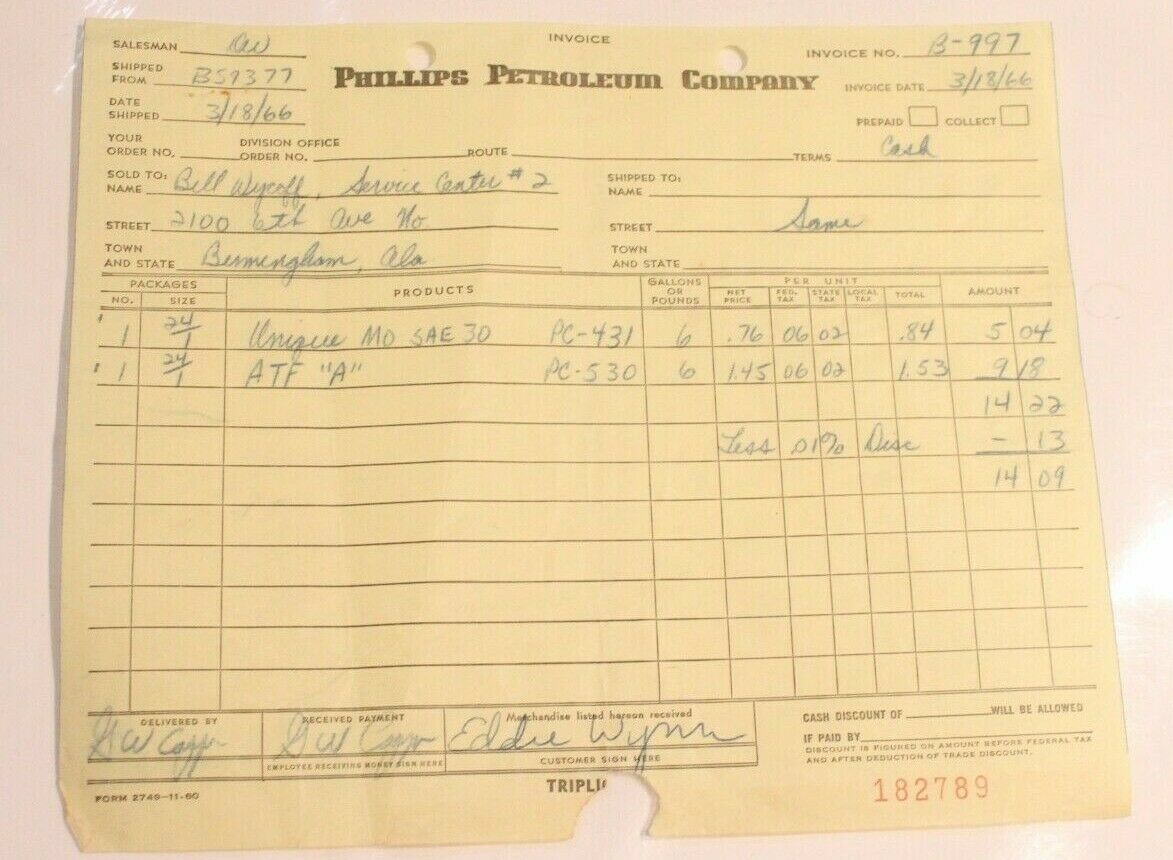 INVOICE
SALESMAN
INVOICE NO. B-997
SHIPPED FROM BS9377
PHILLIPS PETROLEUM COMPANY
INVOICE DATE 3/18/66
DATE SHIPPED 3/18/66
PREPAID COLLECT
YOUR ORDER NO. DIVISION OFFICE ORDER NO. ROUTE TERMS Cash
SOLD TO: NAME Bill Wycoff, Service Center #2
SHIPPED TO: NAME
STREET 2100 6th Ave No.
STREET Same
TOWN AND STATE Birmingham, Ala
TOWN AND STATE
PACKAGES PRODUCTS GALLONS OR POUNDS PER UNIT AMOUNT
NO. SIZE NET PRICE FED. TAX STATE TAX LOCAL TAX TOTAL
1 24/1 Unique MO SAE 30 PC-431 6 .76 06 02 .84 5 04
1 24/1 ATF "A" PC-530 6 1.45 06 02 1.53 9 18
14 22
Less .01% Disc - 13
14 09
DELIVERED BY
RECEIVED PAYMENT
EMPLOYEE RECEIVING MONEY SIGN HERE
Merchandise listed hereon received
Eddie Wynn
CUSTOMER SIGN HERE
CASH DISCOUNT OF WILL BE ALLOWED
IF PAID BY
DISCOUNT IS FIGURED ON AMOUNT BEFORE FEDERAL TAX
AND AFTER DEDUCTION OF TRADE DISCOUNT.
FORM 2749-11-60
TRIPLI
182789